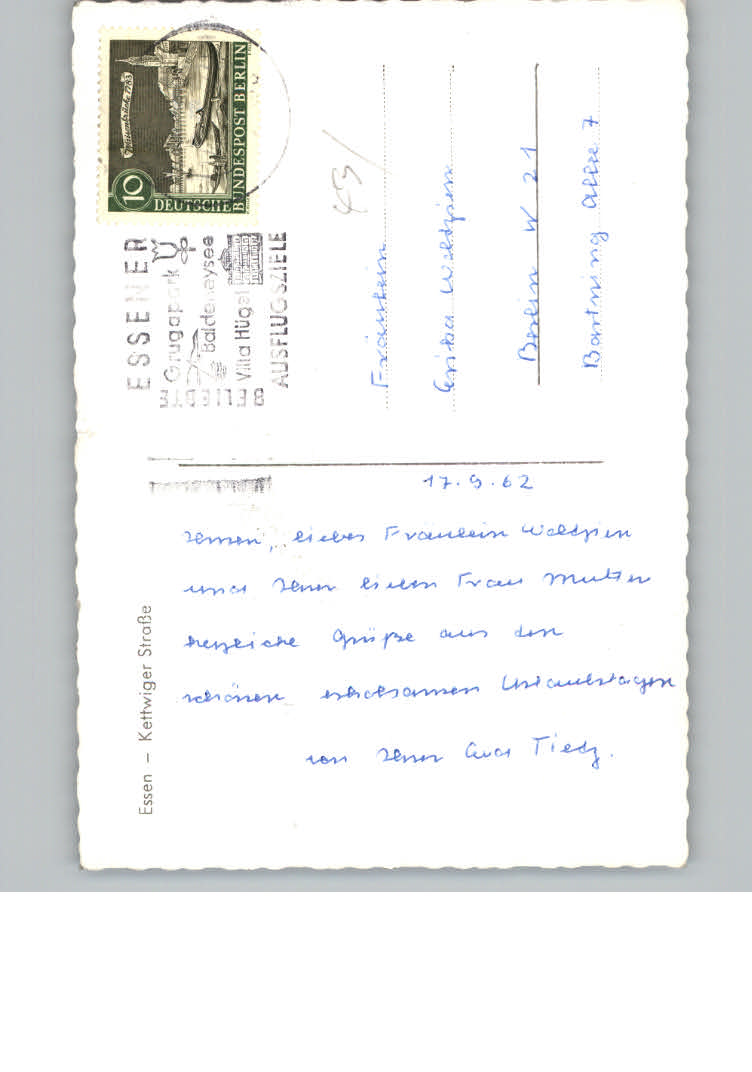 Mühlendammbrücke 1783
10
DEUTSCHE
BUNDESPOST BERLIN
ESSENER
Grugapark
Baldeneysee
Villa Hügel
BELIEBTE
AUSFLUGSZIELE
43/
Fräulein
Erika Waldzien
Berlin W 21
Bartning Allee 7
17.9.62
Ihnen, liebes Fräulein Waldzien
und Ihrer lieben Frau Mutter
herzliche Grüße aus den
schönen erholsamen Urlaubstagen
von Ihrer Eva Tietz.
Essen – Kettwiger Straße